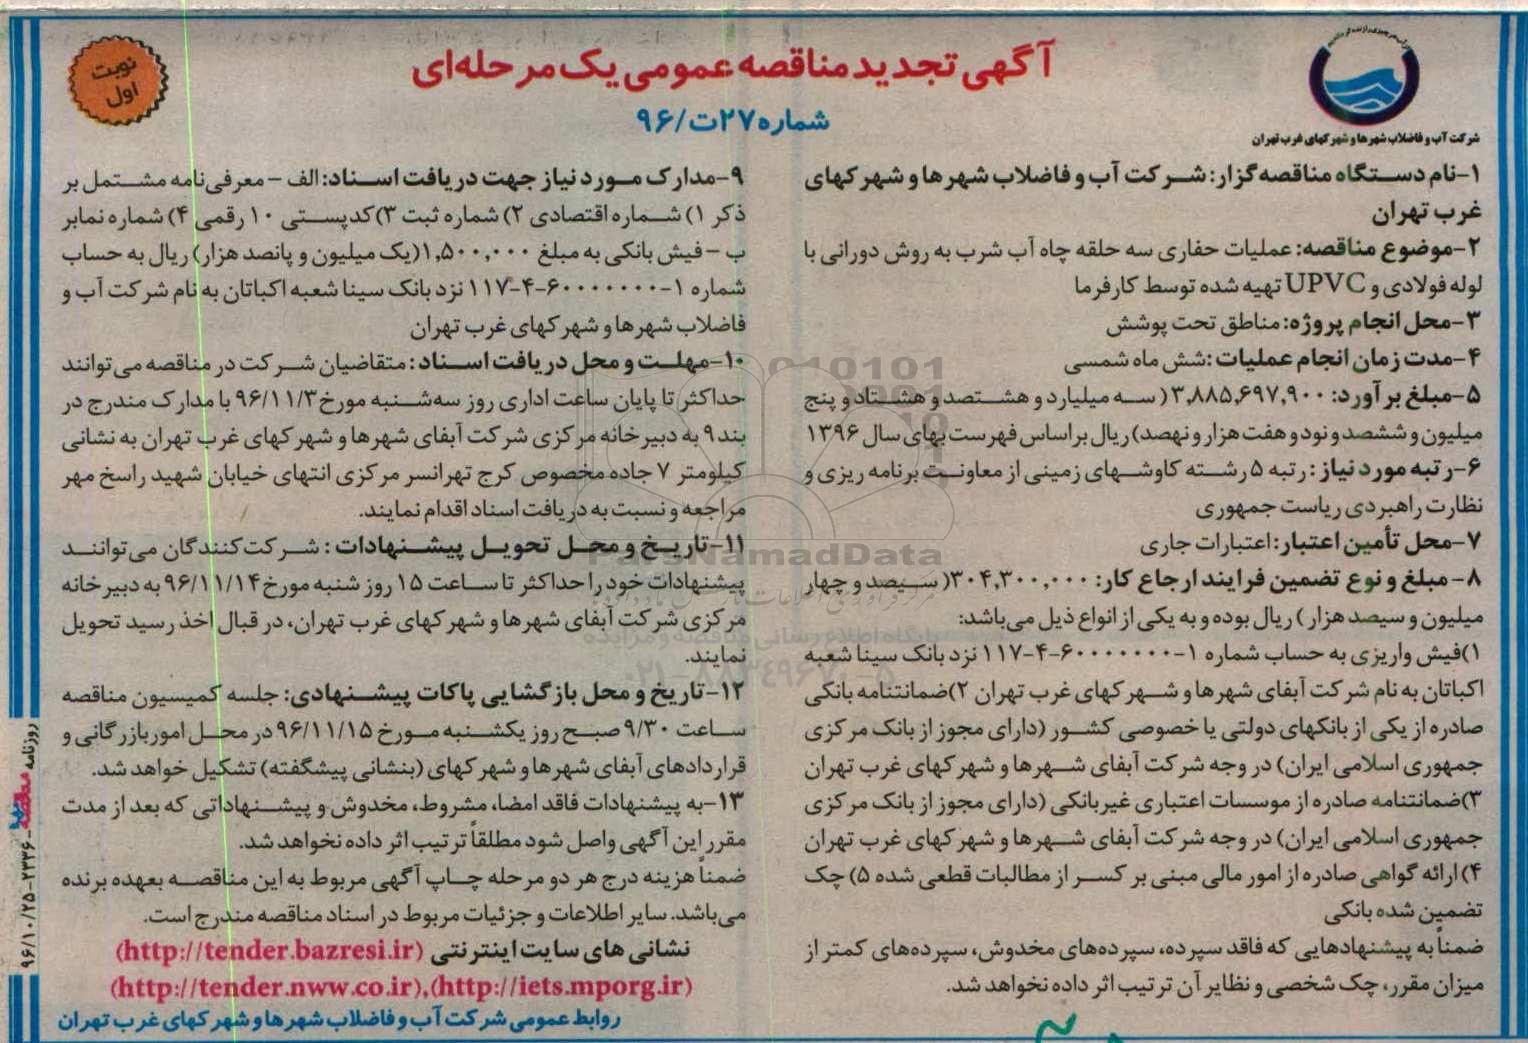 آگهی تجدید مناقصه عمومی یک مرحله‌ای
شماره ۲۷ت/۹۶
نوبت
اول
شرکت آب و فاضلاب شهرها و شهرکهای غرب تهران
۱-نام دستگاه مناقصه‌گزار: شرکت آب و فاضلاب شهرها و شهرکهای
غرب تهران
۲-موضوع مناقصه: عملیات حفاری سه حلقه چاه آب شرب به روش دورانی با
لوله فولادی و UPVC تهیه شده توسط کارفرما
۳-محل انجام پروژه: مناطق تحت پوشش
۴-مدت زمان انجام عملیات: شش ماه شمسی
۵-مبلغ برآورد: ۳,۸۸۵,۶۹۷,۹۰۰ ( سه میلیارد و هشتصد و هشتاد و پنج
میلیون و ششصد و نود و هفت هزار و نهصد) ریال براساس فهرست بهای سال ۱۳۹۶
۶-رتبه مورد نیاز: رتبه ۵ رشته کاوشهای زمینی از معاونت برنامه ریزی و
نظارت راهبردی ریاست جمهوری
۷-محل تأمین اعتبار: اعتبارات جاری
۸- مبلغ و نوع تضمین فرایند ارجاع کار: ۳۰۴,۳۰۰,۰۰۰( سیصد و چهار
میلیون و سیصد هزار ) ریال بوده و به یکی از انواع ذیل می‌باشد:
۱)فیش واریزی به حساب شماره ۱-۶۰۰۰۰۰۰۰-۴-۱۱۷ نزد بانک سینا شعبه
اکباتان به نام شرکت آبفای شهرها و شهرکهای غرب تهران ۲)ضمانتنامه بانکی
صادره از یکی از بانکهای دولتی یا خصوصی کشور (دارای مجوز از بانک مرکزی
جمهوری اسلامی ایران) در وجه شرکت آبفای شهرها و شهرکهای غرب تهران
۳)ضمانتنامه صادره از موسسات اعتباری غیربانکی (دارای مجوز از بانک مرکزی
جمهوری اسلامی ایران) در وجه شرکت آبفای شهرها و شهرکهای غرب تهران
۴) ارائه گواهی صادره از امور مالی مبنی بر کسر از مطالبات قطعی شده ۵) چک
تضمین شده بانکی
ضمناً به پیشنهادهایی که فاقد سپرده، سپرده‌های مخدوش، سپرده‌های کمتر از
میزان مقرر، چک شخصی و نظایر آن ترتیب اثر داده نخواهد شد.
۹-مدارک مورد نیاز جهت دریافت اسناد: الف - معرفی‌نامه مشتمل بر
ذکر ۱) شماره اقتصادی ۲) شماره ثبت ۳)کدپستی ۱۰ رقمی ۴) شماره نمابر
ب - فیش بانکی به مبلغ ۱,۵۰۰,۰۰۰(یک میلیون و پانصد هزار) ریال به حساب
شماره ۱-۶۰۰۰۰۰۰۰-۴-۱۱۷ نزد بانک سینا شعبه اکباتان به نام شرکت آب و
فاضلاب شهرها و شهرکهای غرب تهران
۱۰-مهلت و محل دریافت اسناد: متقاضیان شرکت در مناقصه می‌توانند
حداکثر تا پایان ساعت اداری روز سه‌شنبه مورخ ۹۶/۱۱/۳ با مدارک مندرج در
بند ۹ به دبیرخانه مرکزی شرکت آبفای شهرها و شهرکهای غرب تهران به نشانی
کیلومتر ۷ جاده مخصوص کرج تهرانسر مرکزی انتهای خیابان شهید راسخ مهر
مراجعه و نسبت به دریافت اسناد اقدام نمایند.
۱۱-تاریخ و محل تحویل پیشنهادات: شرکت‌کنندگان می‌توانند
پیشنهادات خود را حداکثر تا ساعت ۱۵ روز شنبه مورخ ۹۶/۱۱/۱۴ به دبیرخانه
مرکزی شرکت آبفای شهرها و شهرکهای غرب تهران، در قبال اخذ رسید تحویل
نمایند.
۱۲-تاریخ و محل بازگشایی پاکات پیشنهادی: جلسه کمیسیون مناقصه
ساعت ۹/۳۰ صبح روز یکشنبه مورخ ۹۶/۱۱/۱۵ در محل امور بازرگانی و
قراردادهای آبفای شهرها و شهرکهای (بنشانی پیشگفته) تشکیل خواهد شد.
۱۳-به پیشنهادات فاقد امضا، مشروط، مخدوش و پیشنهاداتی که بعد از مدت
مقرر این آگهی واصل شود مطلقاً ترتیب اثر داده نخواهد شد.
ضمناً هزینه درج هر دو مرحله چاپ آگهی مربوط به این مناقصه بعهده برنده
می‌باشد. سایر اطلاعات و جزئیات مربوط در اسناد مناقصه مندرج است.
نشانی های سایت اینترنتی (http://tender.bazresi.ir)
(http://tender.nww.co.ir),(http://iets.mporg.ir)
روابط عمومی شرکت آب و فاضلاب شهرها و شهرکهای غرب تهران
روزنامه مناقصه-۲۳۳۶-۹۶/۱۰/۲۵
ParsNamadData
پایگاه اطلاع رسانی مناقصه و مزایده